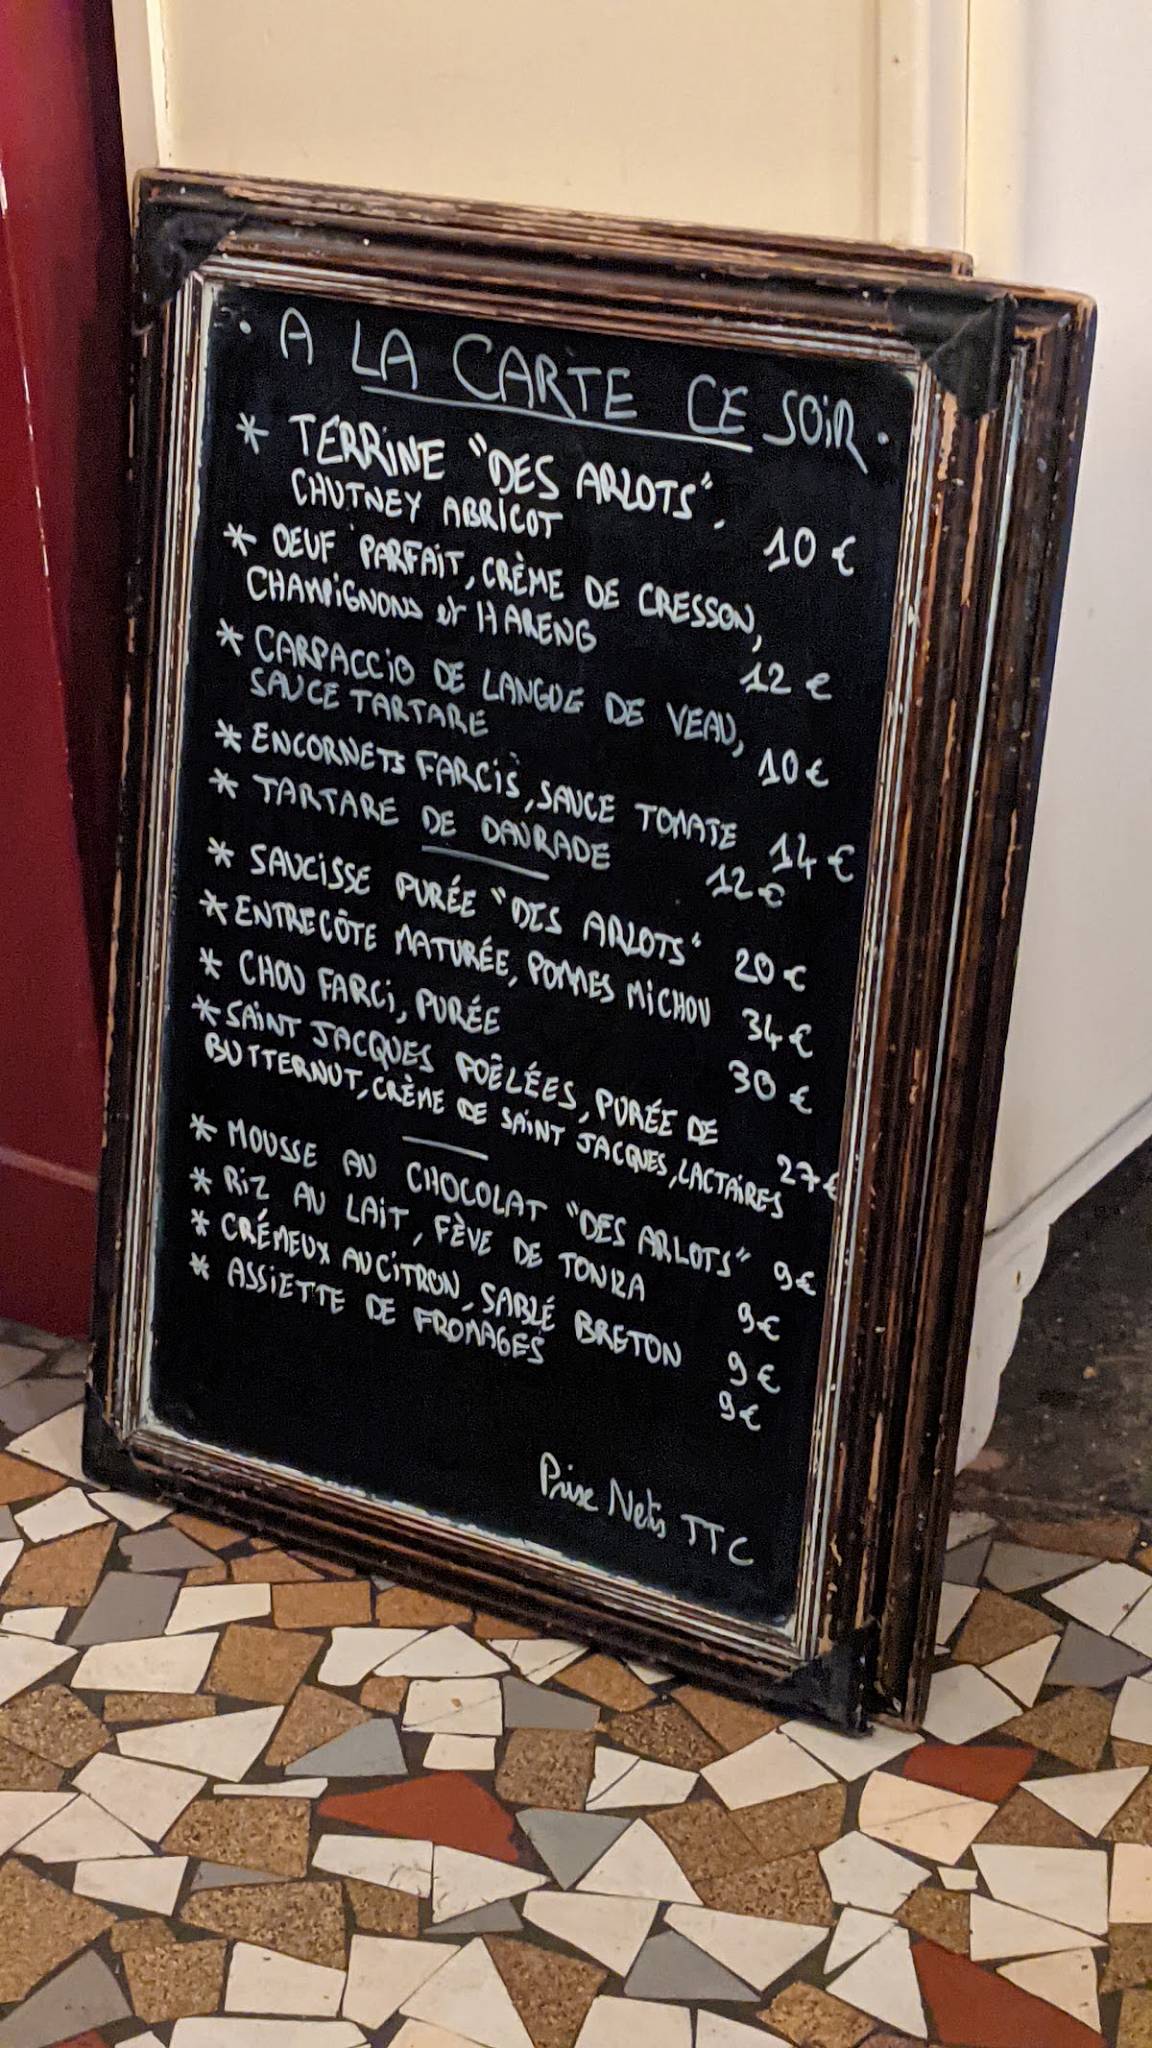 · A LA CARTE CE SOIR ·
* TERRINE "DES ARLOTS".
CHUTNEY ABRICOT 10 €
* OEUF PARFAIT, CRÈME DE CRESSON,
CHAMPIGNONS et HARENG 12 €
* CARPACCIO DE LANGUE DE VEAU,
SAUCE TARTARE 10 €
* ENCORNETS FARCIS, SAUCE TOMATE 14 €
* TARTARE DE DAURADE 12 €
* SAUCISSE PURÉE "DES ARLOTS" 20 €
* ENTRECÔTE MATURÉE, POMMES MICHOU 34 €
* CHOU FARCI, PURÉE 30 €
* SAINT JACQUES POÊLÉES, PURÉE DE
BUTTERNUT, CRÈME DE SAINT JACQUES, LACTAIRES 27 €
* MOUSSE AU CHOCOLAT "DES ARLOTS" 9 €
* RIZ AU LAIT, FÈVE DE TONKA 9 €
* CRÉMEUX AU CITRON, SABLÉ BRETON 9 €
* ASSIETTE DE FROMAGES 9 €
Prix Nets TTC